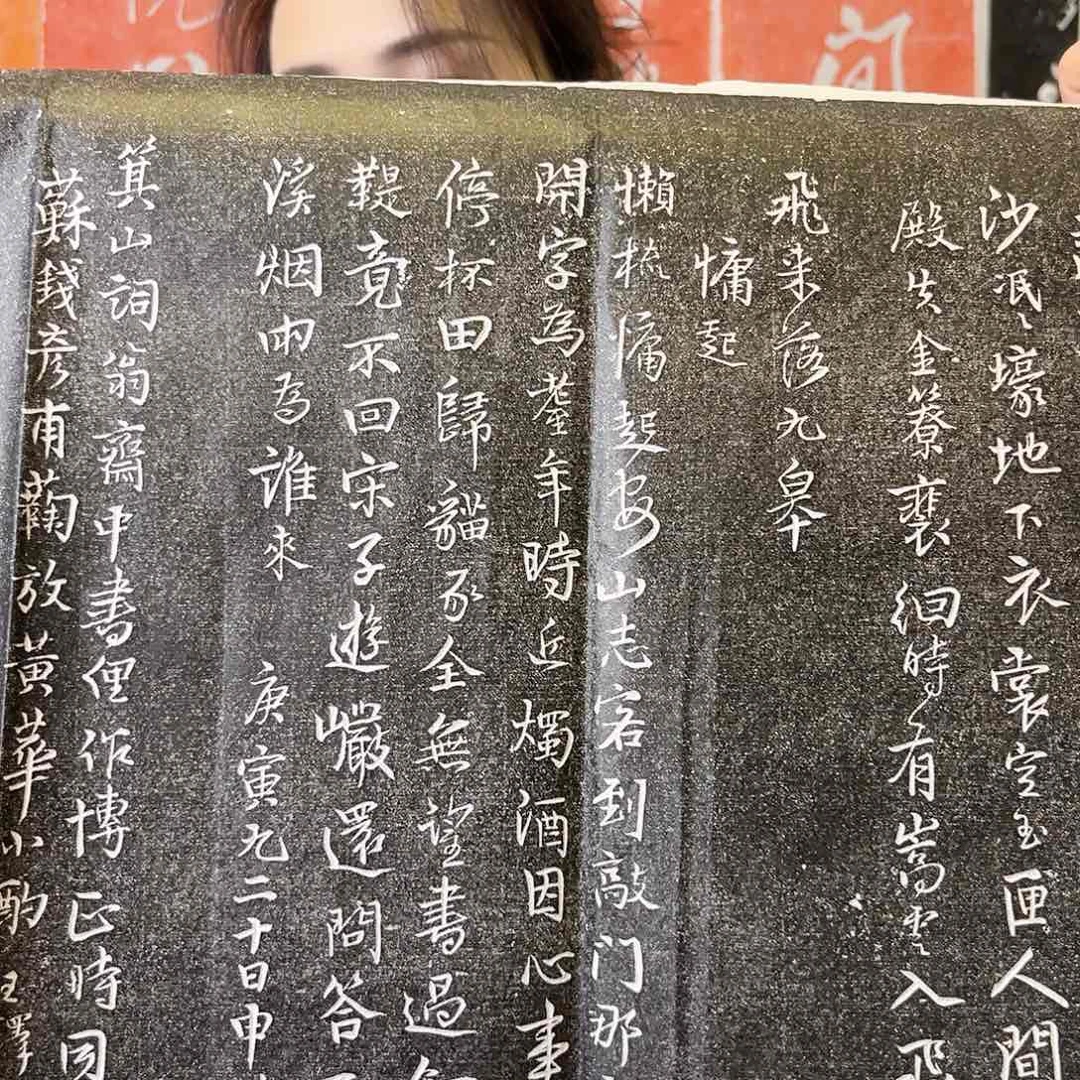 沙泯泯壕地下衣裳空玉匣人間
殿失金簝裵徊時有嵩雲入飛
飛來落九皋
慵起
懶梳慵起出山志客到敲门那
開字為耋年時近燭酒因心事
停杯田歸貓豕全無望書過
鞮竟不回宋子遊巖還問答
溪烟雨為誰來 庚寅九二十日申
箕山詞翁齋中書俚作博正時同
蘇錢彥甫蘜放黃華小酌王澤